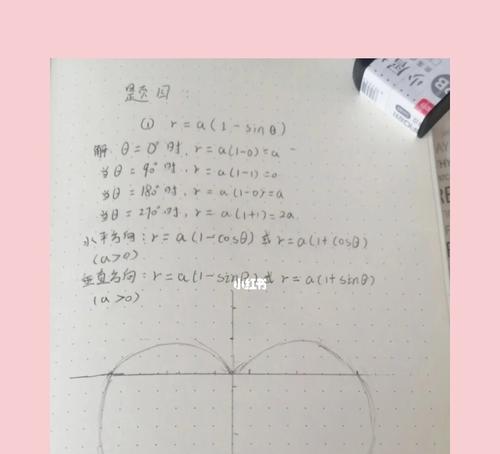 题图:
① r = a(1-sinθ)
解: θ=0°时, r=a(1-0)=a
当θ=90°时, r=a(1-1)=0
当θ=180°时, r=a(1-0)=a
当θ=270°时, r=a(1+1)=2a
水平方向: r=a(1-cosθ) 或 r=a(1+cosθ)
(a>0)
垂直方向: r=a(1-sinθ) 或 r=a(1+sinθ)
(a>0)
小红书